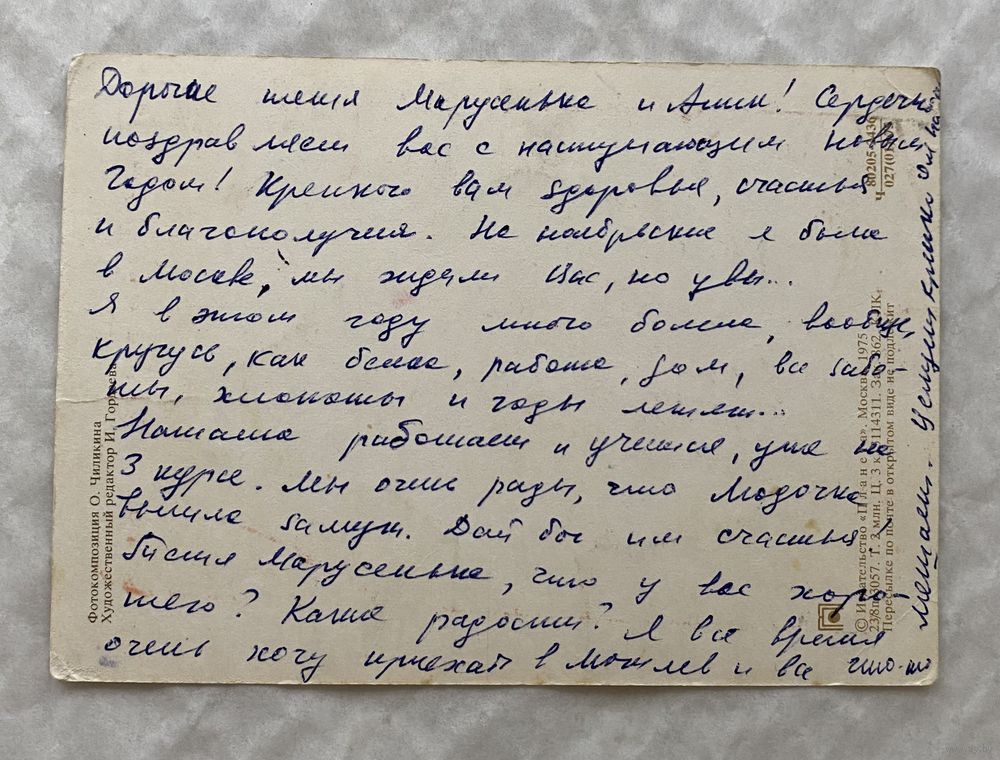 Дорогие тетя Марусенька и Анни! Сердечно
поздравляем вас с наступающим новым
годом! Крепкого вам здоровья, счастья
и благополучия. На ноябрьские я была
в Москве, мы ждали Вас, но увы...
Я в этом году много болела, вообще,
кручусь, как белка, работа, дом, все забо-
ты, хлопоты и годы летят...
Наташа работает и учится, уже на
3 курсе. Мы очень рады, что Людочка
вышла замуж. Дай бог им счастья.
Тетя Марусенька, что у вас хоро-
шего? Какие радости? Я все время
очень хочу приехать в Могилев и все что-то
мешает. Целуем крепко
Фотокомпозиция О. Чиликина
Художественный редактор И. Гордеева
© Издательство «Планета». Москва, 1975
Пересылке по почте в открытом виде не подлежит